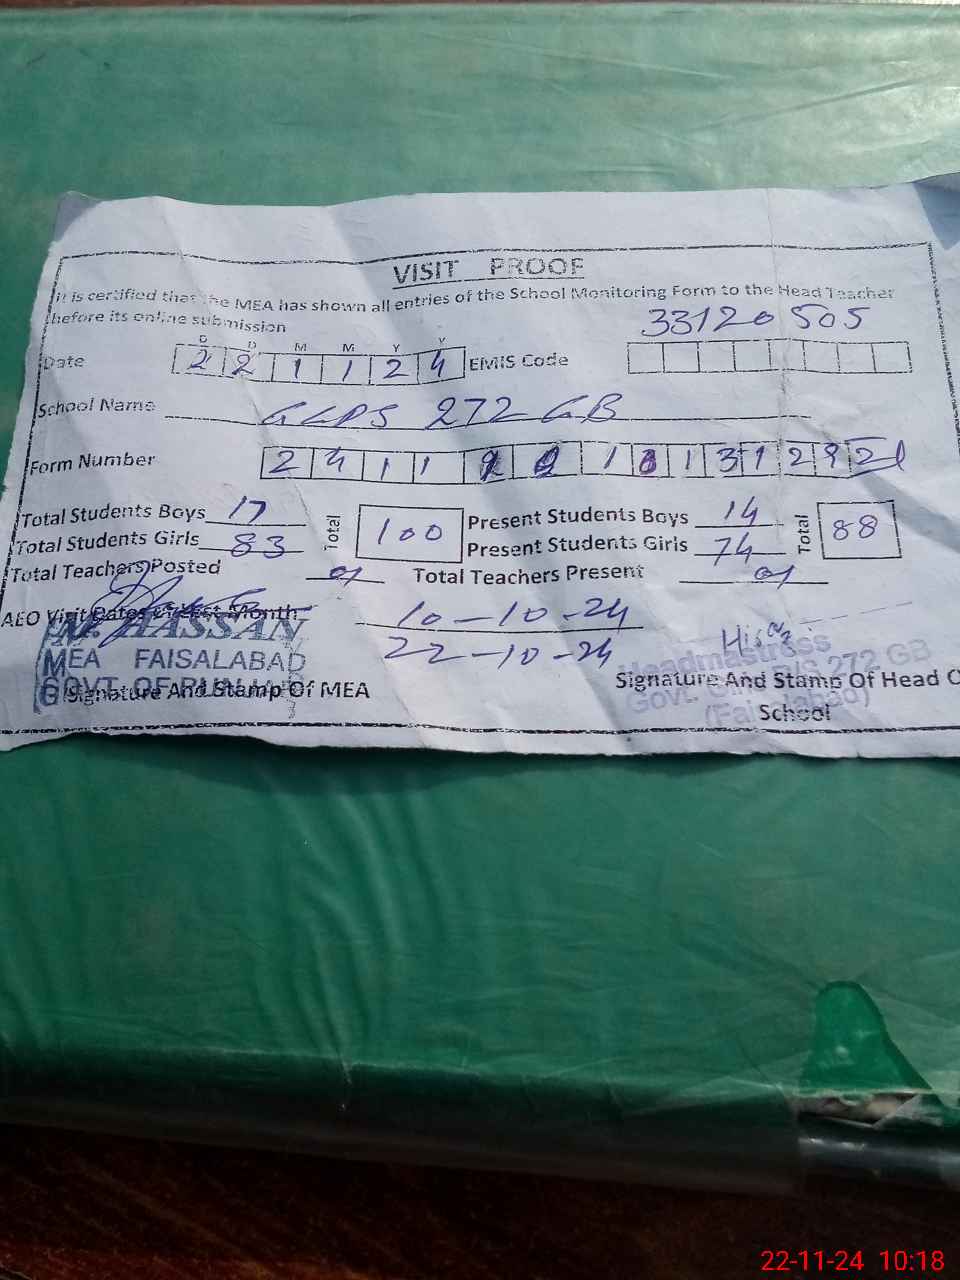 VISIT PROOF
It is certified that the MEA has shown all entries of the School Monitoring Form to the Head Teacher
before its online submission
33120505
D D M M Y Y
Date 2 2 1 1 2 4 EMIS Code
School Name GLPS 272 GB
Form Number 2 4 1 1 1 3 1 2 9 21
Total Students Boys 17 Total 100 Present Students Boys 14 Total 88
Total Students Girls 83 Present Students Girls 74
Total Teachers Posted 01 Total Teachers Present 01
AEO Visit Dates Of Last Month 10-10-24
22-10-24
HASSAN
MEA FAISALABAD
GOVT. OF PUNJAB
Signature And Stamp Of MEA
Headmastress
Govt. 272 GB
(Faisalabad)
Signature And Stamp Of Head O
School
22-11-24 10:18